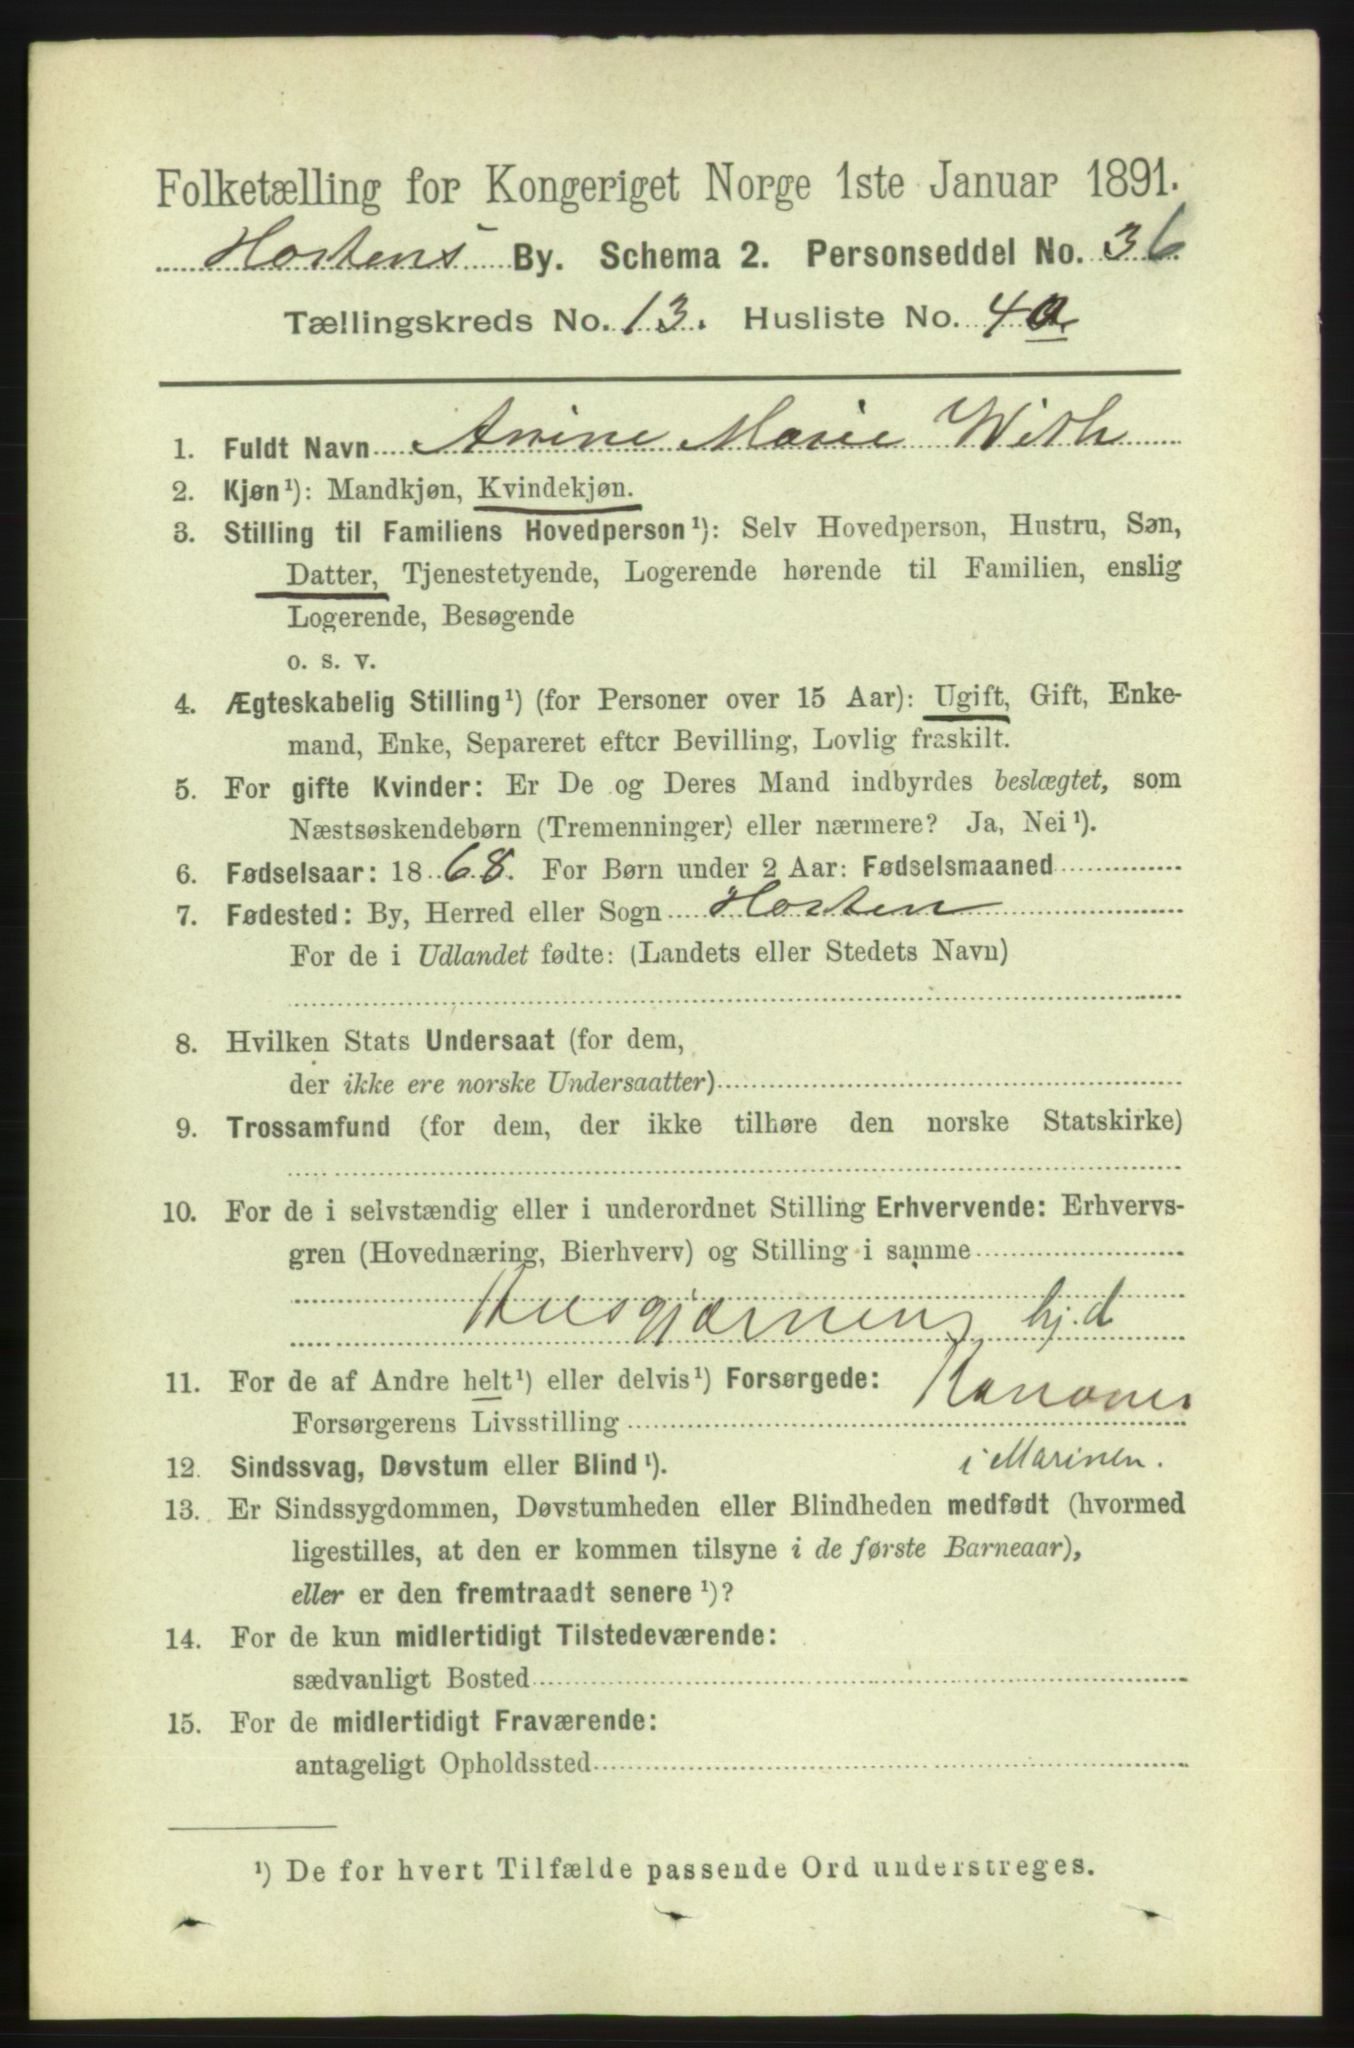 Folketælling for Kongeriget Norge 1ste Januar 1891.
Hortens By. Schema 2. Personseddel No. 36
Tællingskreds No. 13. Husliste No. 4a.
1. Fuldt Navn Anine Marie With
2. Kjøn¹): Mandkjøn, Kvindekjøn.
3. Stilling til Familiens Hovedperson¹): Selv Hovedperson, Hustru, Søn,
Datter, Tjenestetyende, Logerende hørende til Familien, enslig
Logerende, Besøgende
o. s. v.
4. Ægteskabelig Stilling¹) (for Personer over 15 Aar): Ugift, Gift, Enke-
mand, Enke, Separeret efter Bevilling, Lovlig fraskilt.
5. For gifte Kvinder: Er De og Deres Mand indbyrdes beslægtet, som
Næstsøskendebørn (Tremenninger) eller nærmere? Ja, Nei¹).
6. Fødselsaar: 1868. For Børn under 2 Aar: Fødselsmaaned
7. Fødested: By, Herred eller Sogn Horten
For de i Udlandet fødte: (Landets eller Stedets Navn)
8. Hvilken Stats Undersaat (for dem,
der ikke ere norske Undersaatter)
9. Trossamfund (for dem, der ikke tilhøre den norske Statskirke)
10. For de i selvstændig eller i underordnet Stilling Erhvervende: Erhvervs-
gren (Hovednæring, Bierhverv) og Stilling i samme
Husgjærning hj.d
11. For de af Andre helt¹) eller delvis¹) Forsørgede: Kanoner
Forsørgerens Livsstilling
12. Sindssvag, Døvstum eller Blind¹). i Marinen.
13. Er Sindssygdommen, Døvstumheden eller Blindheden medfødt (hvormed
ligestilles, at den er kommen tilsyne i de første Barneaar),
eller er den fremtraadt senere¹)?
14. For de kun midlertidigt Tilstedeværende:
sædvanligt Bosted
15. For de midlertidigt Fraværende:
antageligt Opholdssted
¹) De for hvert Tilfælde passende Ord understreges.